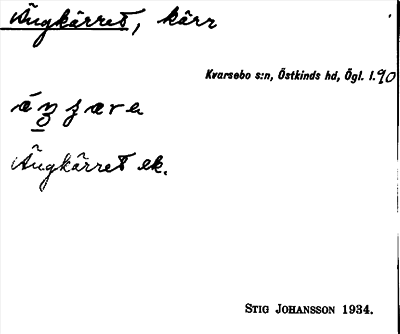 Ängkärret, kärr
Kvarsebo s:n, Östkinds hd, Ögl. l. 90
Ängkärret ek.
STIG JOHANSSON 1934.